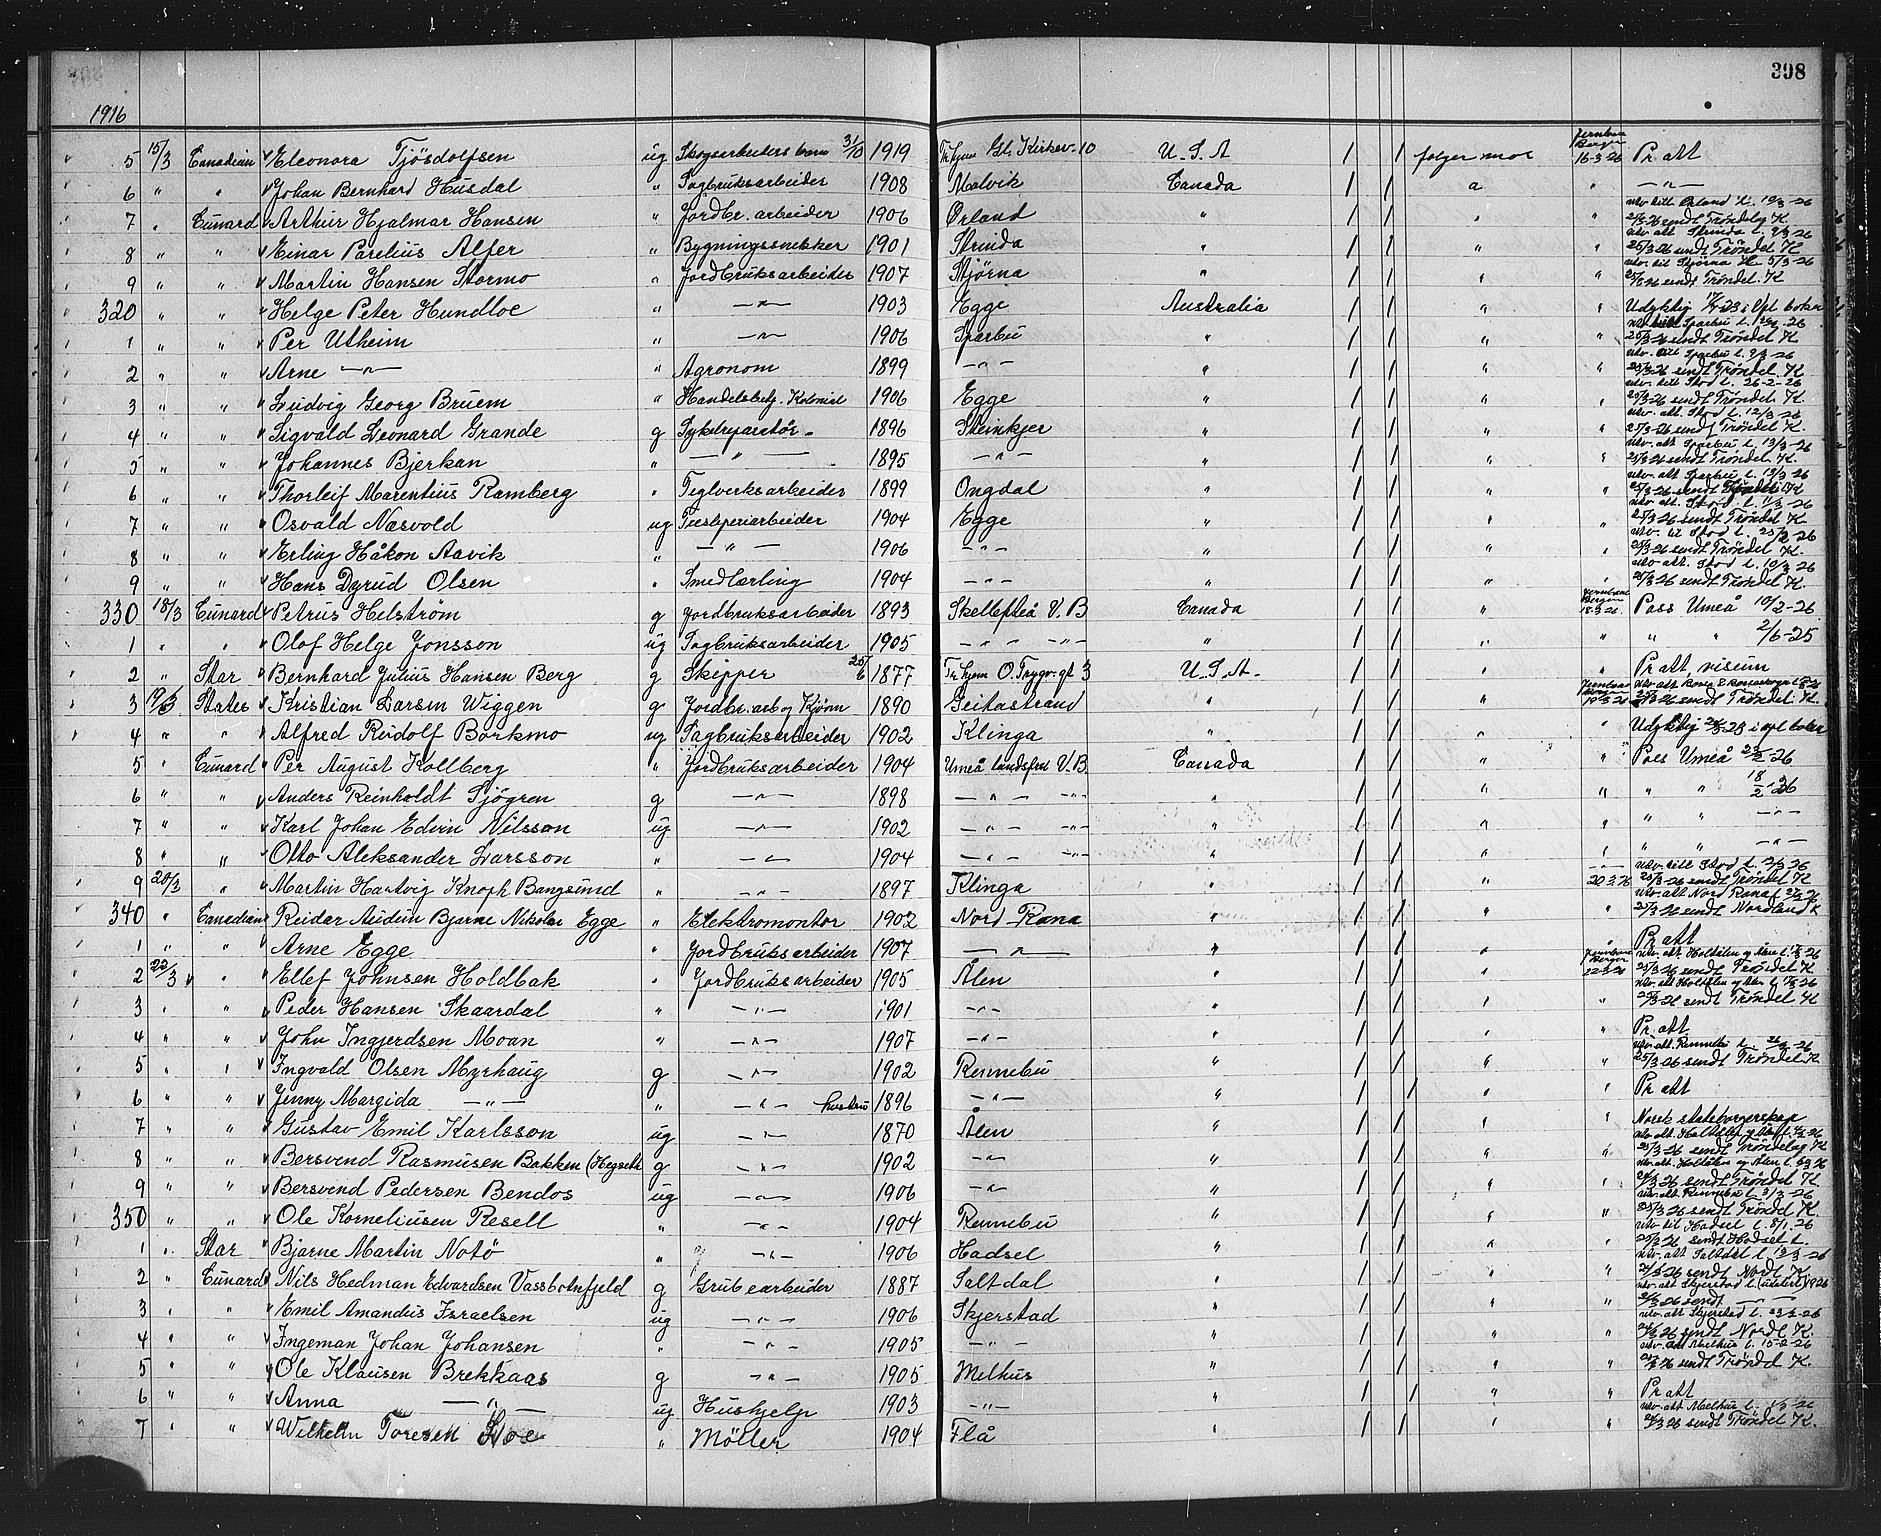 398
1916
5 15/3 Canadian Eleonora Tjösdolfsen ug Skogsarbeiders barn 3/10 1919 Tr.hjem Gl. Kirkev. 10 U.S.A 1 1 følger mor Jernbane Bergen 16-3-26 Pr att
6 " " Johan Bernhard Husdal " Sagbruksarbeider 1908 Malvik Canada 1 1 a " — " —
utv. till Örland L. 26
7 " Cunard Arthur Hjalmar Hansen " Jordbr. arbeider 1906 Ørland " 1 1 " " sendt Trøndelag K
utv. att Strinda L. 9/3-26
8 " " Einar Parelius Alfer " Bygningssnekker 1901 Strinda " 1 1 " " 25/3-26 sendt Trøndel K
utv. til Stjørna 5/3-26
9 " " Martin Hansen Stormo " Jordbruksarbeider 1907 Stjørna " 1 1 " " 25/3-26 sendt Trøndel. K
320 " " Helge Peter Hundloe " — " — 1903 Egge Australia 1 1 " " Udyktig
utv. till Sparbu L. 26
1 " " Per Utheim " — " — 1906 Sparbu " 1 1 " 25/3-26 sendt Trøndel K
utv. till Sparbu L. 9/3-26
2 " " Arne — " — " Agronom 1899 — " — " 1 1 " " 25/3-26 sendt Trøndel K
utv. till Stod L. 26-2-26
3 " " Ludvig Georg Bruem " Handelsbetj. Kolonial 1906 Egge " 1 1 " " 25/3-26 sendt Trøndel K.
utv. att. Stod L. 12/3-26
4 " " Sigvald Leonard Grande g Sykelreparatør 1896 Steinkjer " 1 1 " " 25/3-26 sendt Trøndel K.
utv. att Sparbu L. 13/3-26
5 " " Johannes Bjerkan " — " — 1895 — " — " 1 1 " " 25/3-26 sendt Trøndel K.
utv. att Sparbu L. 13/3-26
6 " " Thorleif Marentius Ramberg " Teglverksarbeider 1899 Ongdal " 1 1 " " 25/3-26 sendt Trøndel K
utv. att. Stod L. 26
7 " " Osvald Næsvold ug arbeider 1904 Egge " 1 1 " " 25/3-26 sendt Trøndel K
utv. til Stod L. 25/2-26
8 " " Erling Håkon Aavik " — " — 1906 — " — " 1 1 " " 25/3-26 sendt Trøndel K.
utv. att. Stod L. 10/3-26
9 " " Hans Dyrud Olsen " Smedlærling 1904 — " — " 1 1 " " 25/3-26 sendt Trøndel K.
330 18/3 Cunard Petrus Helström g Jordbruksarbeider 1893 Skellefteå V.B Canada 1 1 " Jernbane Bergen 18-3-26 Pass Umeå 10/2-26
1 " " Olof Helge Jonsson ug Sagbruksarbeider 1905 — " — — " — " 1 1 " " " " 2/6-25
2 " Star Bernhard Julius Hansen Berg g Skipper 25/6 1877 Tr.hjem O. Trygv. gt 3 U.S.A. 1 1 " " Pr att, viseum
3 19/3 States Kristian Larsen Wiggen g Jordbr. arb og Kjörm 1890 Leitastrand 1 1 " Jernbane Bergen 19-3-26 25/3-26 sendt Trøndel K.
4 " " Alfred Rudolf Borkmo ug Sagbruksarbeider 1902 Klinga " 1 1 " " Udyktig
5 " Cunard Per August Kollberg " Jordbruksarbeider 1904 Umeå landsförs. V.B. Canada 1 1 " " Pass Umeå 23/2-26
6 " " Anders Reinholdt Sjögren g — " — 1898 — " — — " — " 1 1 " " " " 18/2-26
7 " " Karl Johan Edvin Nilsson ug — " — 1902 — " — — " — " 1 1 " " " " — " —
8 " " Otto Aleksander Larsson " — " — 1904 — " — — " — " 1 1 " " " " — " —
utv. till Stod L. 26
9 20/3 " Martin Hartvig Knoph Bangsund " — " — 1897 Klinga " 1 1 " 20-3-26 25/3-26 sendt Trøndel K
utv. att Nord Rana L. 26
340 " Canadian Reidar Audun Bjarne Nikolai Egge " Elektromontør 1902 Nord Rana " 1 1 " " 25/3-26 sendt Nordland K
1 " " Arne Egge " Jordbruksarbeider 1907 — " — " 1 1 " " Pr att
utv. att Holtålen og Ålen L. 26
2 22/3 " Ellef Johnsen Holdbak " Jordbruksarbeider 1905 Ålen " 1 1 " Jernbane Bergen 22-3-26 25/3-26 sendt Trøndel K
utv. att Holtålen og Ålen L. 26
3 " " Peder Hansen Skaardal " — " — 1901 — " — " 1 1 " " 25/3-26 sendt Trøndel K
4 " " John Ingjerdsen Moan " — " — 1907 — " — " 1 1 " " Pr. att
utv. att. Rennebu L. 26
5 " " Ingvald Olsen Myrhaug g — " — 1902 Rennebu " 1 1 " " 25/3-26 sendt Trøndel K
6 " " Jenny Margida — " — " — " — hustru 1896 — " — " 1 1 " " Pr att
7 " " Gustav Emil Karlsson ug — " — 1870 Ålen " 1 1 " " Norsk statsborgerskap
utv. att. Holtålen og Ålen L. 26
8 " " Bersvend Rasmusen Bakken (Hegseth g — " — 1902 — " — " 1 1 " " 25/3-26 sendt Trøndelag K
utv. att. Holtålen og Ålen L. 26
9 " " Bersvend Pedersen Bendos ug — " — 1906 — " — " 1 1 " " 25/3-26 sendt Trøndel K
utv. att Rennebu L. 3/3-26
350 " " Ole Korneliusen Resell " — " — 1904 Rennebu " 1 1 " " 25/3-26 sendt Trøndel K
utv. till Hadsel L. 8/1.26
1 " Star Bjarne Martin Notö " — " — 1906 Hadsel " 1 1 " " 25/3-26 sendt Hadsel L.
utv. att Saltdal L. 26
2 " Cunard Nils Hedman Edvardsen Vassbotnfjeld g Grubearbeider 1887 Saltdal " 1 1 " " sendt Nordl K
utv. att Skjerstad L. 1926
3 " " Emil Amandus Israelsen ug — " — 1906 Skjerstad " 1 1 " " sendt — " —
utv. att Skjerstad L. 26
4 " " Ingeman Johan Johansen " — " — 1905 — " — " 1 1 " " sendt Nordl K.
utv. att Melhus L. 15-2-26
5 " " Ole Klausen Brekkaas g — " — 1905 Melhus " 1 1 " " sendt Trøndel K.
6 " " Anna — " — ug Hushjelp 1903 — " — " 1 1 " " Pr att
utv. att Melhus L. 26
7 " " Wilhelm Toresen Loe " Möller 1904 Flå " 1 1 " " sendt Trøndel K.